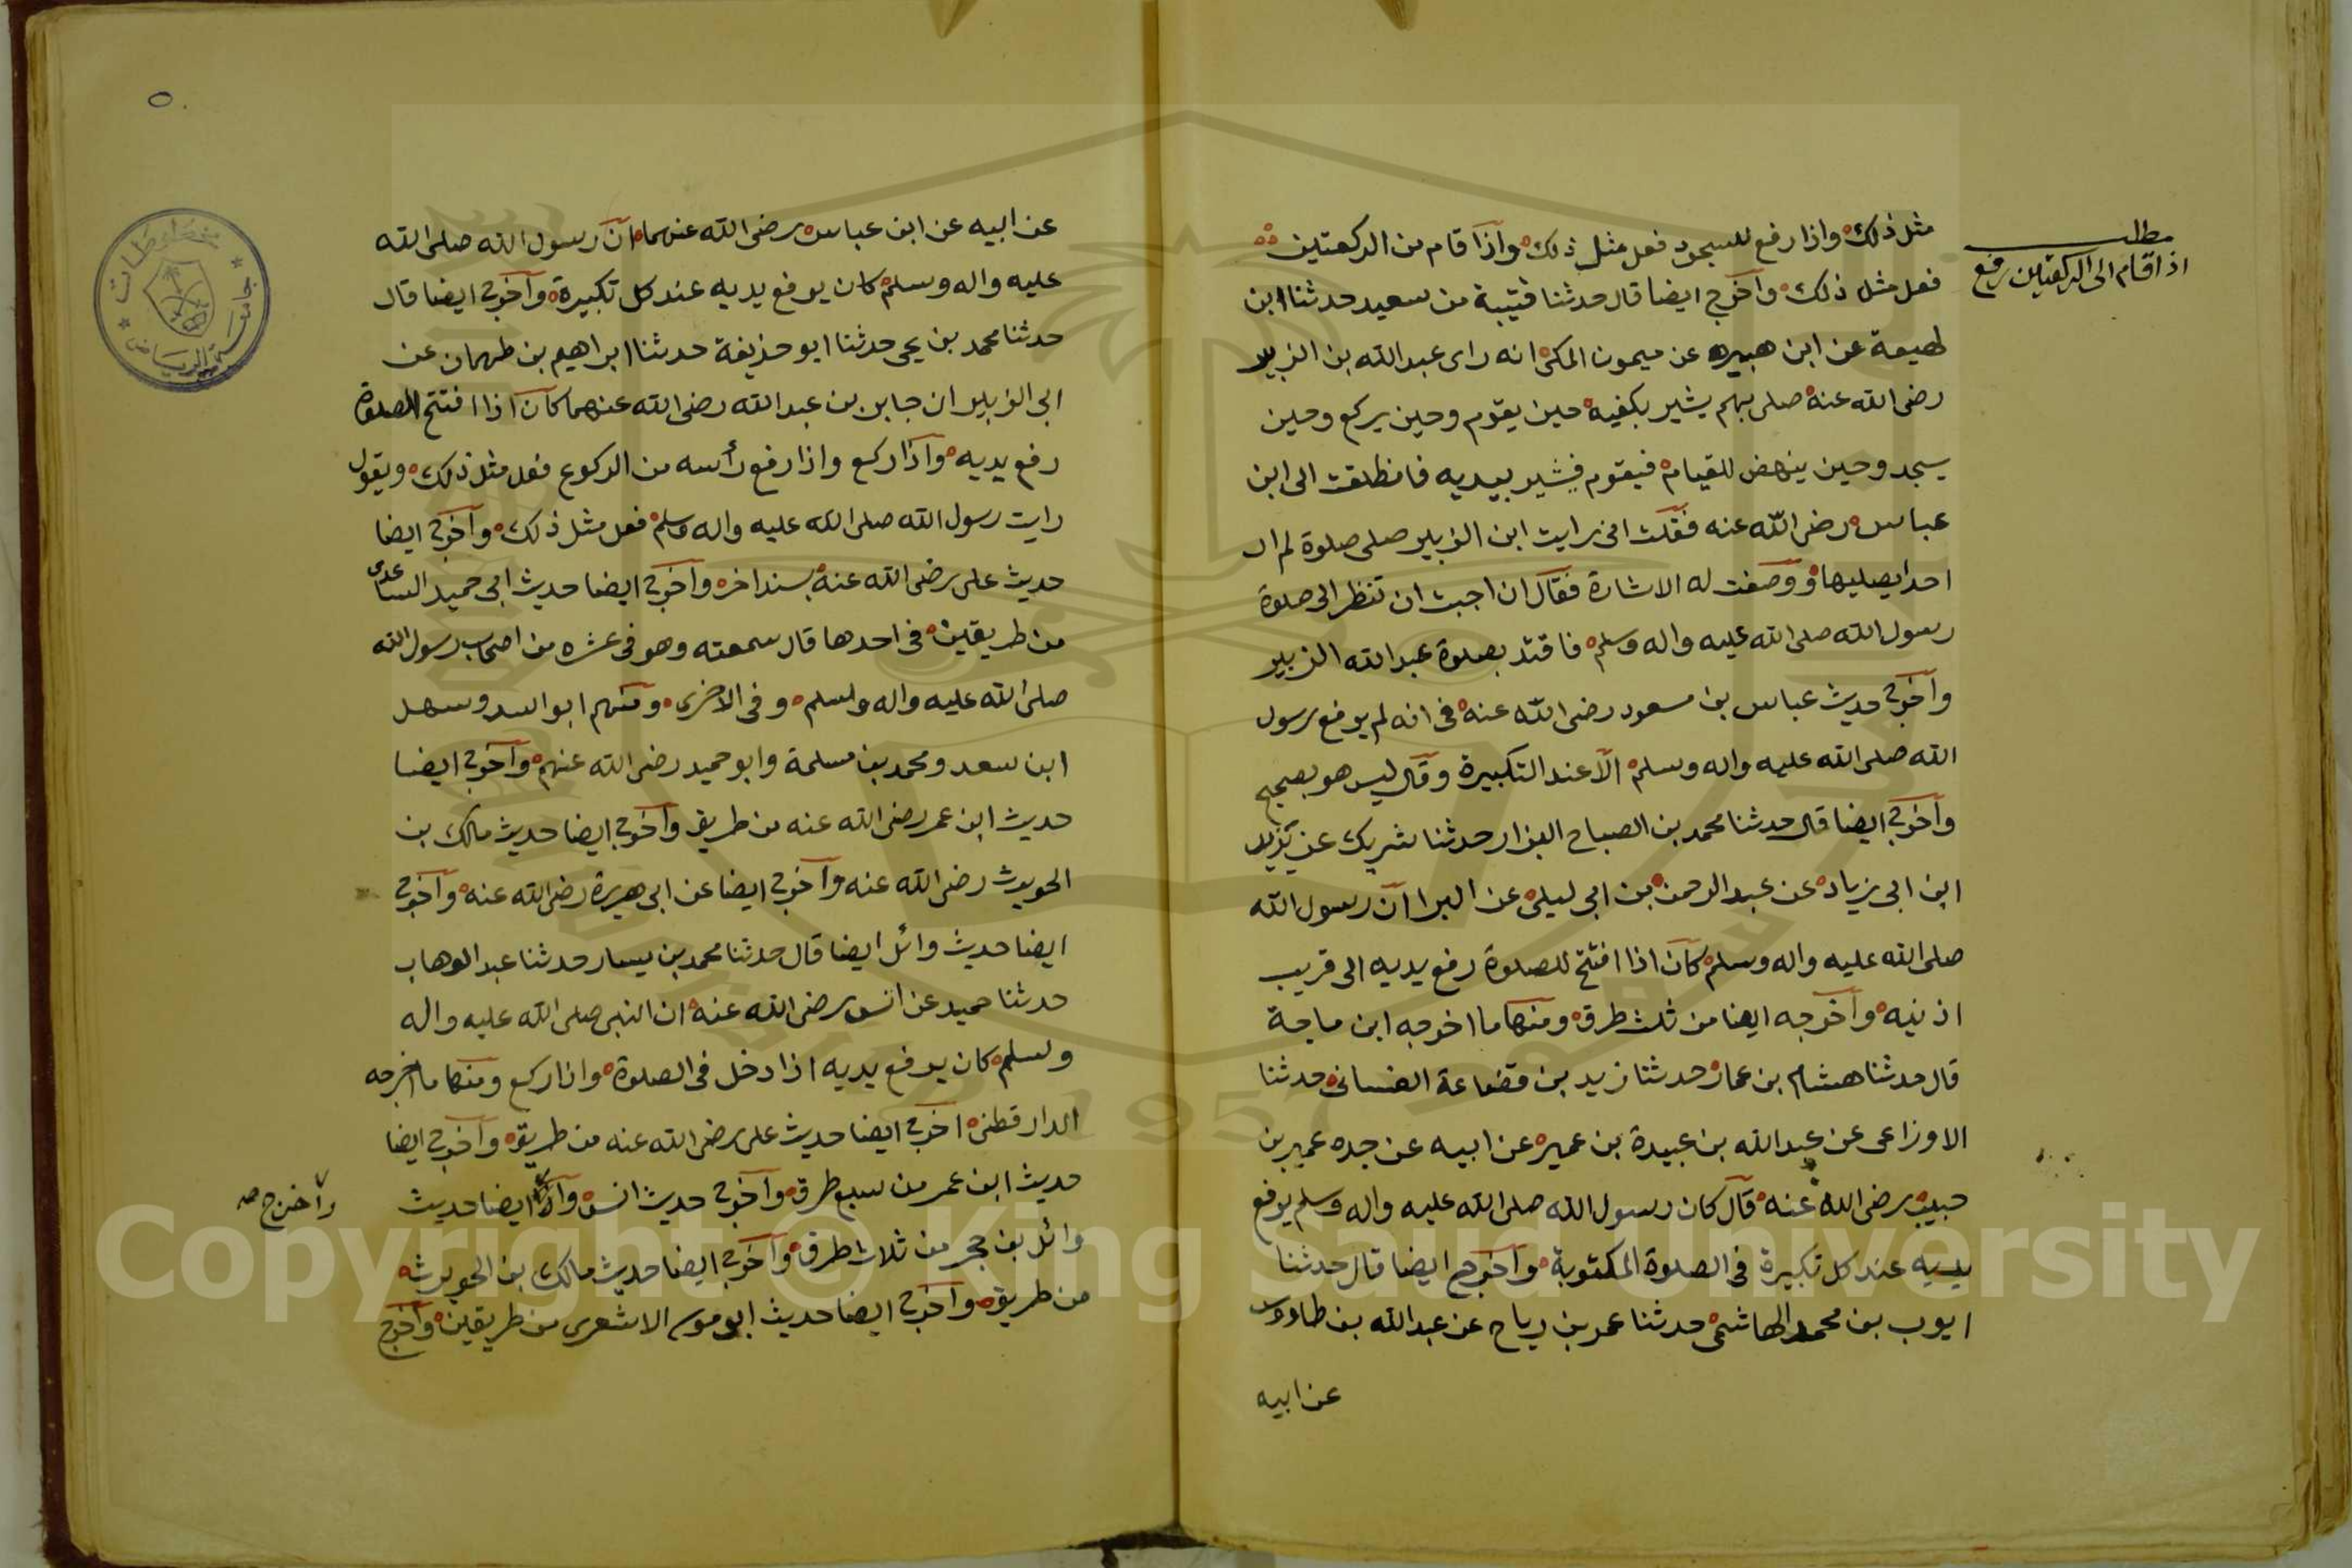 مطلب
اذا قام الى الركعتين رفع
مثل ذلك واذا رفع للسجود فعل مثل ذلك واذا قام من الركعتين
فعل مثل ذلك واخرج ايضا قال حدثنا قتيبة من سعيد حدثنا ابن
لهيعة عن ابن هبيره عن ميمون المكي انه راى عبد الله بن الزبير
رضى الله عنه صلى بهم يشير بكفيه حين يقوم وحين يركع وحين
يسجد وحين ينهض للقيام فيقوم فيشير بيديه فانطلقت الى ابن
عباس رضى الله عنه فقلت انى رايت ابن الزبير صلى صلوة لم ار
احدا يصليها ووصفت له الاشارة فقال ان احببت ان تنظر الى صلوة
رسول الله صلى الله عليه واله وسلم فاقتد بصلوة عبد الله الزبير
واخرج حديث عباس بن مسعود رضى الله عنه فى انه لم يرفع رسول
الله صلى الله عليه واله وسلم الا عند التكبيرة وقال ليس هو بصحيح
واخرج ايضا قال حدثنا محمد بن الصباح البزار حدثنا شريك عن يزيد
ابن ابى زياد عن عبد الرحمن بن ابى ليلى عن البرا ان رسول الله
صلى الله عليه واله وسلم كان اذا افتتح للصلوة رفع يديه الى قريب
اذنيه واخرجه ايضا من ثلث طرق ومنها ما اخرجه ابن ماجة
قال حدثنا هشام بن عمار حدثنا زيد بن قضاعة الغسانى حدثنا
الاوزاعى عن عبد الله بن عبيدة بن عمير عن ابيه عن جده عمير بن
حبيب رضى الله عنه قال كان رسول الله صلى الله عليه واله وسلم يرفع
يديه عند كل تكبيرة فى الصلوة المكتوبة واخرج ايضا قال حدثنا
ايوب بن محمد الهاشمى حدثنا عمر بن رياح عن عبد الله بن طاووس
عن ابيه
عن ابيه عن ابن عباس رضى الله عنهما ان رسول الله صلى الله
عليه واله وسلم كان يرفع يديه عند كل تكبيرة واخرج ايضا قال
حدثنا محمد بن يحى حدثنا ابو حذيفة حدثنا ابراهيم بن طهمان عن
ابى الزبير ان جابر بن عبد الله رضى الله عنهما كان اذا افتتح الصلوة
رفع يديه واذا ركع واذا رفع رأسه من الركوع فعل مثل ذلك ويقول
رايت رسول الله صلى الله عليه واله وسلم فعل مثل ذلك واخرج ايضا
حديث على رضى الله عنه بسند اخره واخرج ايضا حديث ابى حميد الساعدى
من طريقين فى احدها قال سمعته وهو فى عشره من اصحاب رسول الله
صلى الله عليه واله وسلم وفى الاخرى ومنهم ابو اسد وسهل
ابن سعد ومحمد بن مسلمة وابو حميد رضى الله عنهم واخرج ايضا
حديث ابن عمر رضى الله عنه من طريق واخرج ايضا حديث مالك بن
الحويرث رضى الله عنه واخرج ايضا عن ابى هريرة رضى الله عنه واخرج
ايضا حديث وائل ايضا قال حدثنا محمد بن يسار حدثنا عبد الوهاب
حدثنا حميد عن انس رضى الله عنه ان النبى صلى الله عليه واله
وسلم كان يرفع يديه اذا دخل فى الصلوة واذا ركع ومنها ما اخرجه
الدارقطنى اخرج ايضا حديث على رضى الله عنه من طريق واخرج ايضا
حديث ابن عمر من سبع طرق واخرج حديث انس ايضا حديث
واخرج صح
وائل بن حجر من ثلاث طرق واخرج ايضا حديث مالك بن الحويرث
من طريق واخرج ايضا حديث ابو موسى الاشعرى من طريقين واخرج
جامعة الرياض
مخطوطات
٥
1957
Copyright © King Saud University